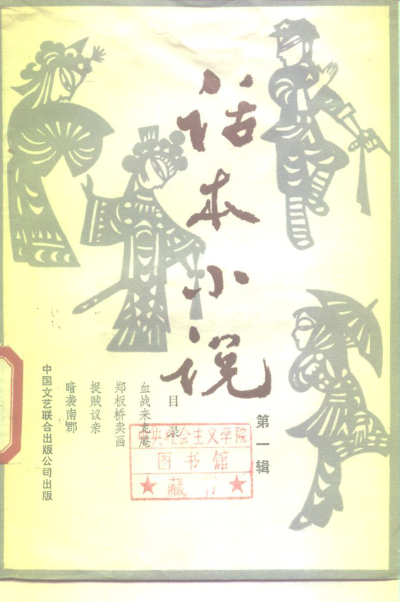 话本小说
第一辑
目录
血战来龙庵
郑板桥卖画
捉贼议亲
暗袭南郡
中国文艺联合出版公司出版
中央社会主义学院
图书馆
藏书